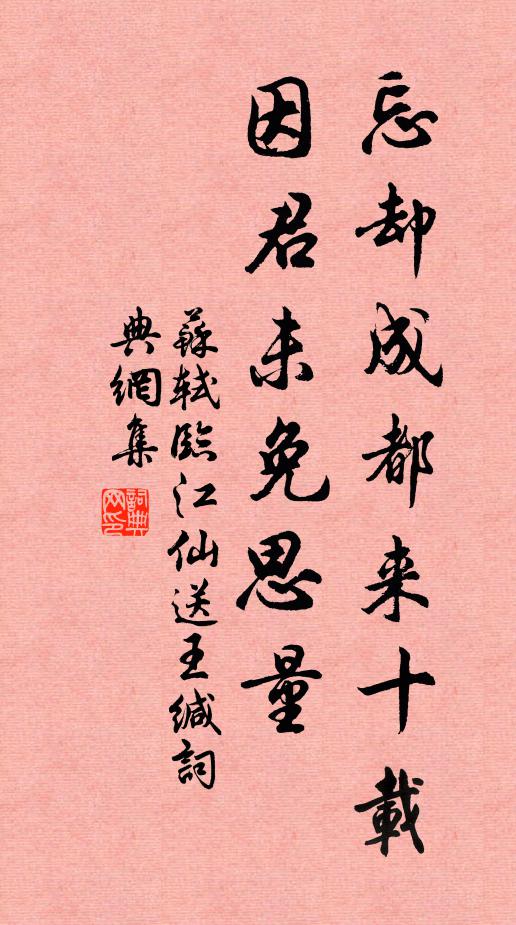 忘却成都来十載
因君未免思量
蘇軾臨江仙送王緘詞
典網集
詞典网印